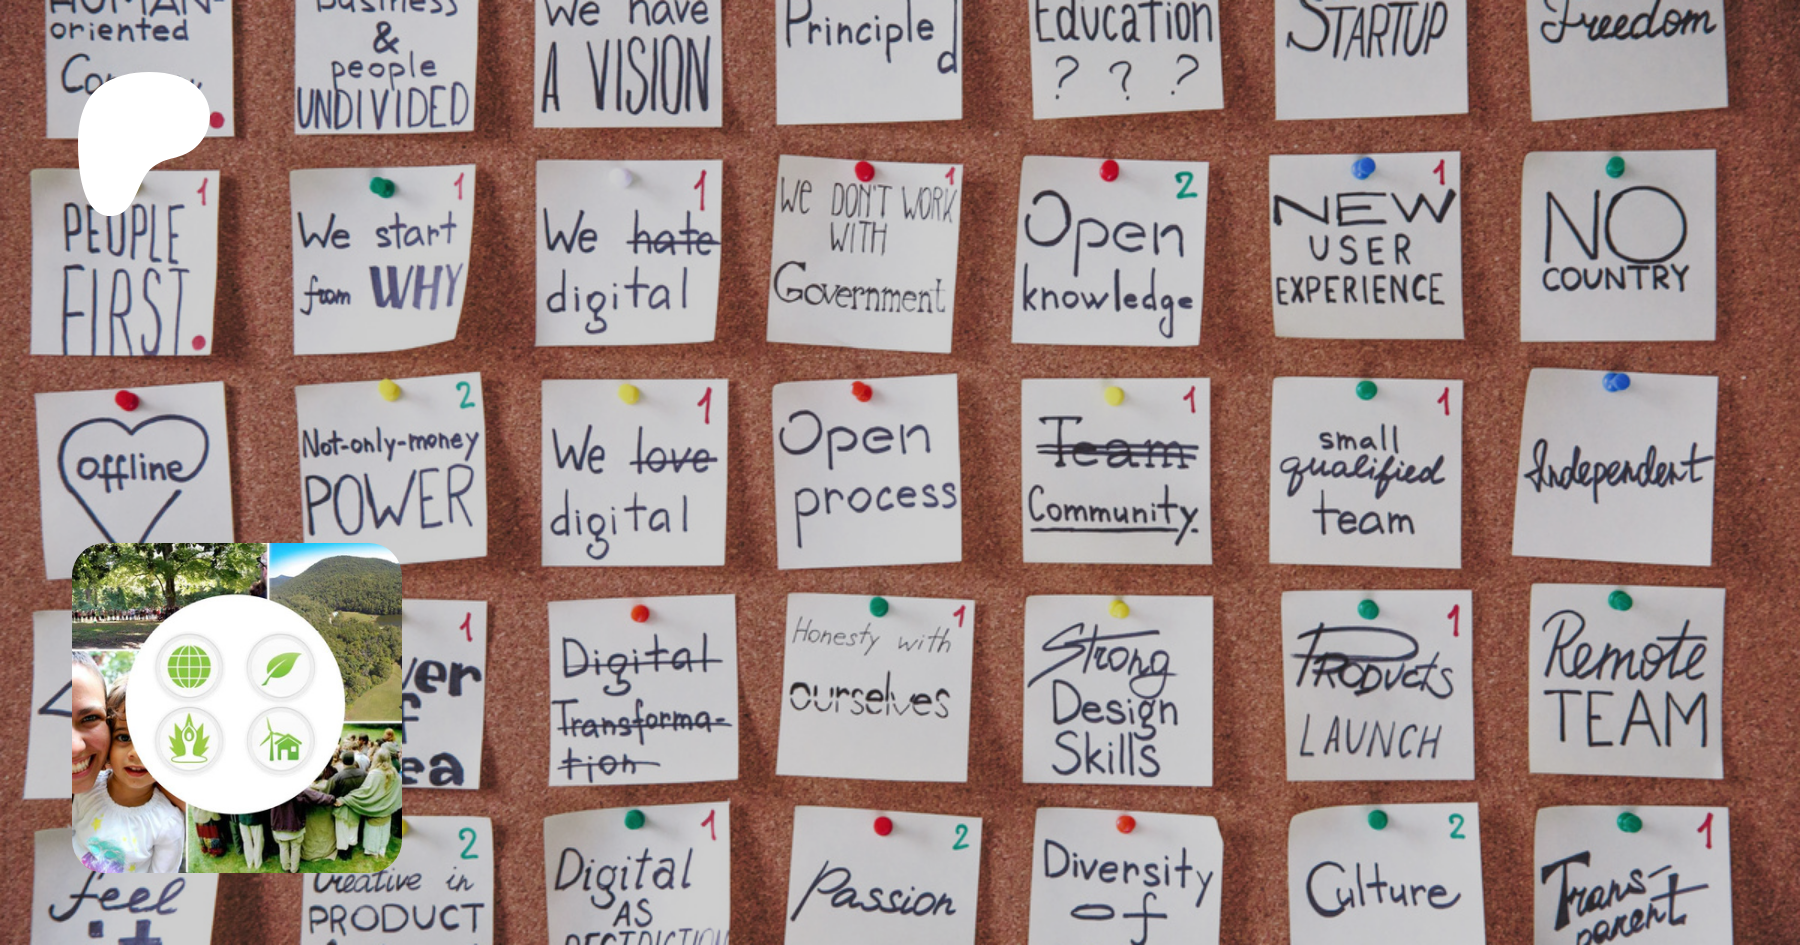 HUMAN-
oriented
business
&
people
UNDIVIDED
We have
A VISION
Principled
Education
? ? ?
STARTUP
Freedom
1
PEOPLE
FIRST.
1
We start
from WHY
1
We hate
digital
1
We DON'T WORK
WITH
Government
2
Open
knowledge
1
NEW
USER
EXPERIENCE
NO
COUNTRY
offline
2
Not-only-money
POWER
1
We love
digital
Open
process
1
Team
Community.
1
small
qualified
team
Independent
1
Digital
Transforma-
tion
1
Honesty with
ourselves
Strong
Design
Skills
1
PRODUCTS
LAUNCH
Remote
TEAM
feel
2
Creative in
PRODUCT
1
Digital
AS
RESTRICTION
2
Passion
Diversity
of
2
Culture
1
Trans-
parent